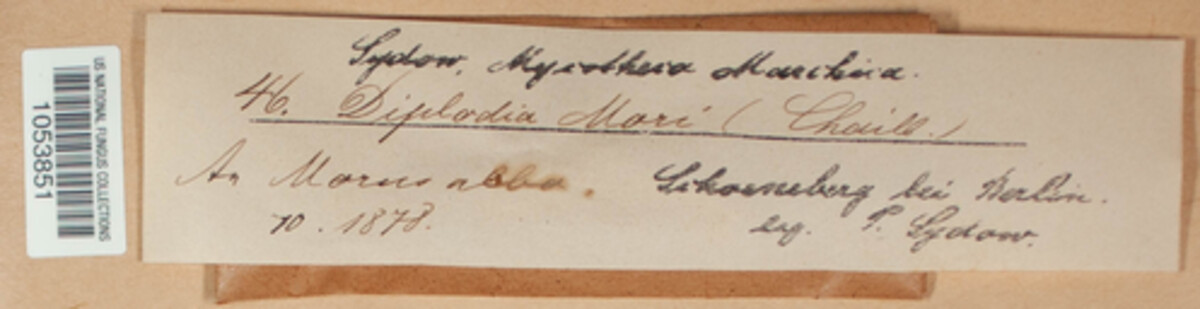 US NATIONAL FUNGUS COLLECTIONS
1053851
Sydow, Mycotheca Marchica.
46. Diplodia Mori (Chaill.)
An Morus alba.
Schoeneberg bei Berlin.
10. 1878.
leg. P. Sydow.